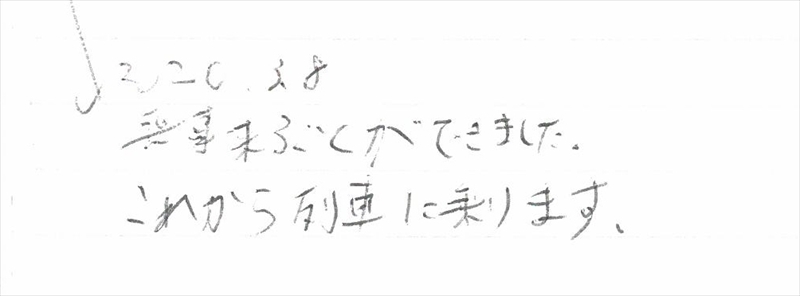 2020.3.8
無事来ることができました。
これから列車に乗ります。